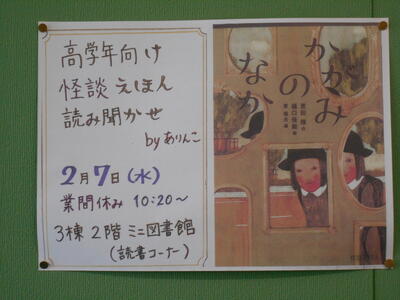 高学年向け
怪談えほん
読み聞かせ
by ありんこ
2月7日(水)
業間休み 10:20～
3棟2階 ミニ図書館
(読書コーナー)
かがみ
の
なか
恩田 陸・作
樋口佳絵・絵
東 雅夫・編